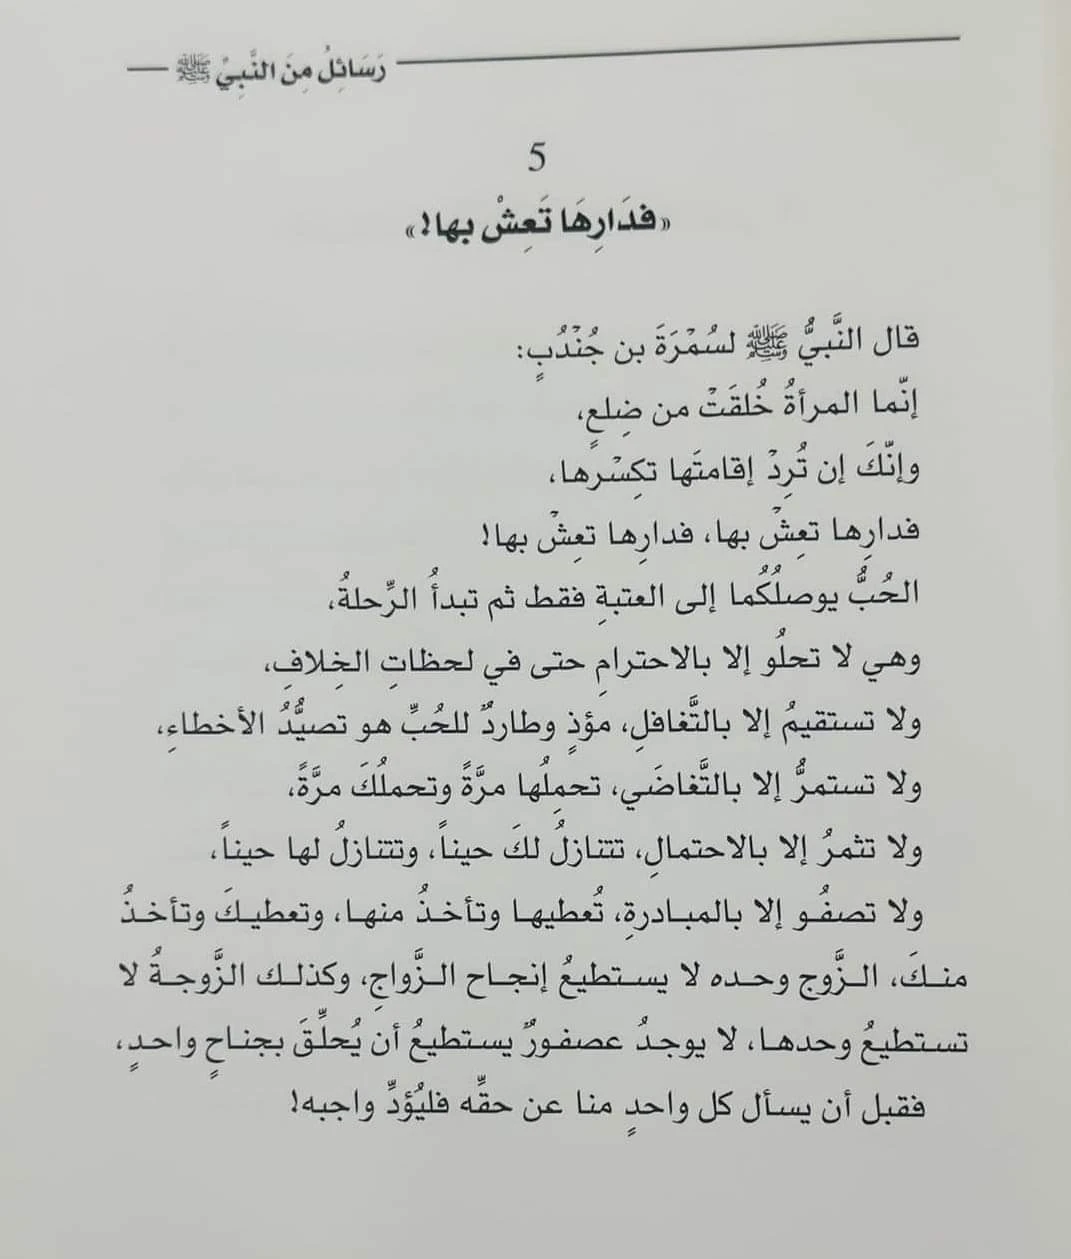 رَسَائِلُ مِنَ النَّبِيِّ ﷺ
5
«فدَارِهَا تَعِشْ بها!»
قال النَّبيُّ ﷺ لسُمْرَةَ بن جُنْدُبٍ:
إنّما المرأةُ خُلقَتْ من ضِلعٍ،
وإنّكَ إن تُرِدْ إقامتَها تكسْرها،
فدارِها تعِشْ بها، فدارِها تعِشْ بها!
الحُبُّ يوصلُكُما إلى العتبةِ فقط ثم تبدأُ الرِّحلةُ،
وهي لا تحلُو إلا بالاحترامِ حتى في لحظاتِ الخِلافِ،
ولا تستقيمُ إلا بالتَّغافلِ، مؤذٍ وطاردٌ للحُبِّ هو تصيُّدُ الأخطاءِ،
ولا تستمرُّ إلا بالتَّغاضَي، تحمِلُها مرَّةً وتحملُكَ مرَّةً،
ولا تثمرُ إلا بالاحتمالِ، تتنازلُ لكَ حيناً، وتتنازلُ لها حيناً،
ولا تصفُو إلا بالمبادرةِ، تُعطيها وتأخذُ منها، وتعطيكَ وتأخذُ
منكَ، الزَّوج وحده لا يستطيعُ إنجاح الزَّواجِ، وكذلك الزَّوجةُ لا
تستطيعُ وحدها، لا يوجدُ عصفورٌ يستطيعُ أن يُحلِّقَ بجناحٍ واحدٍ،
فقبل أن يسأل كل واحدٍ منا عن حقِّه فليُؤدِّ واجبه!